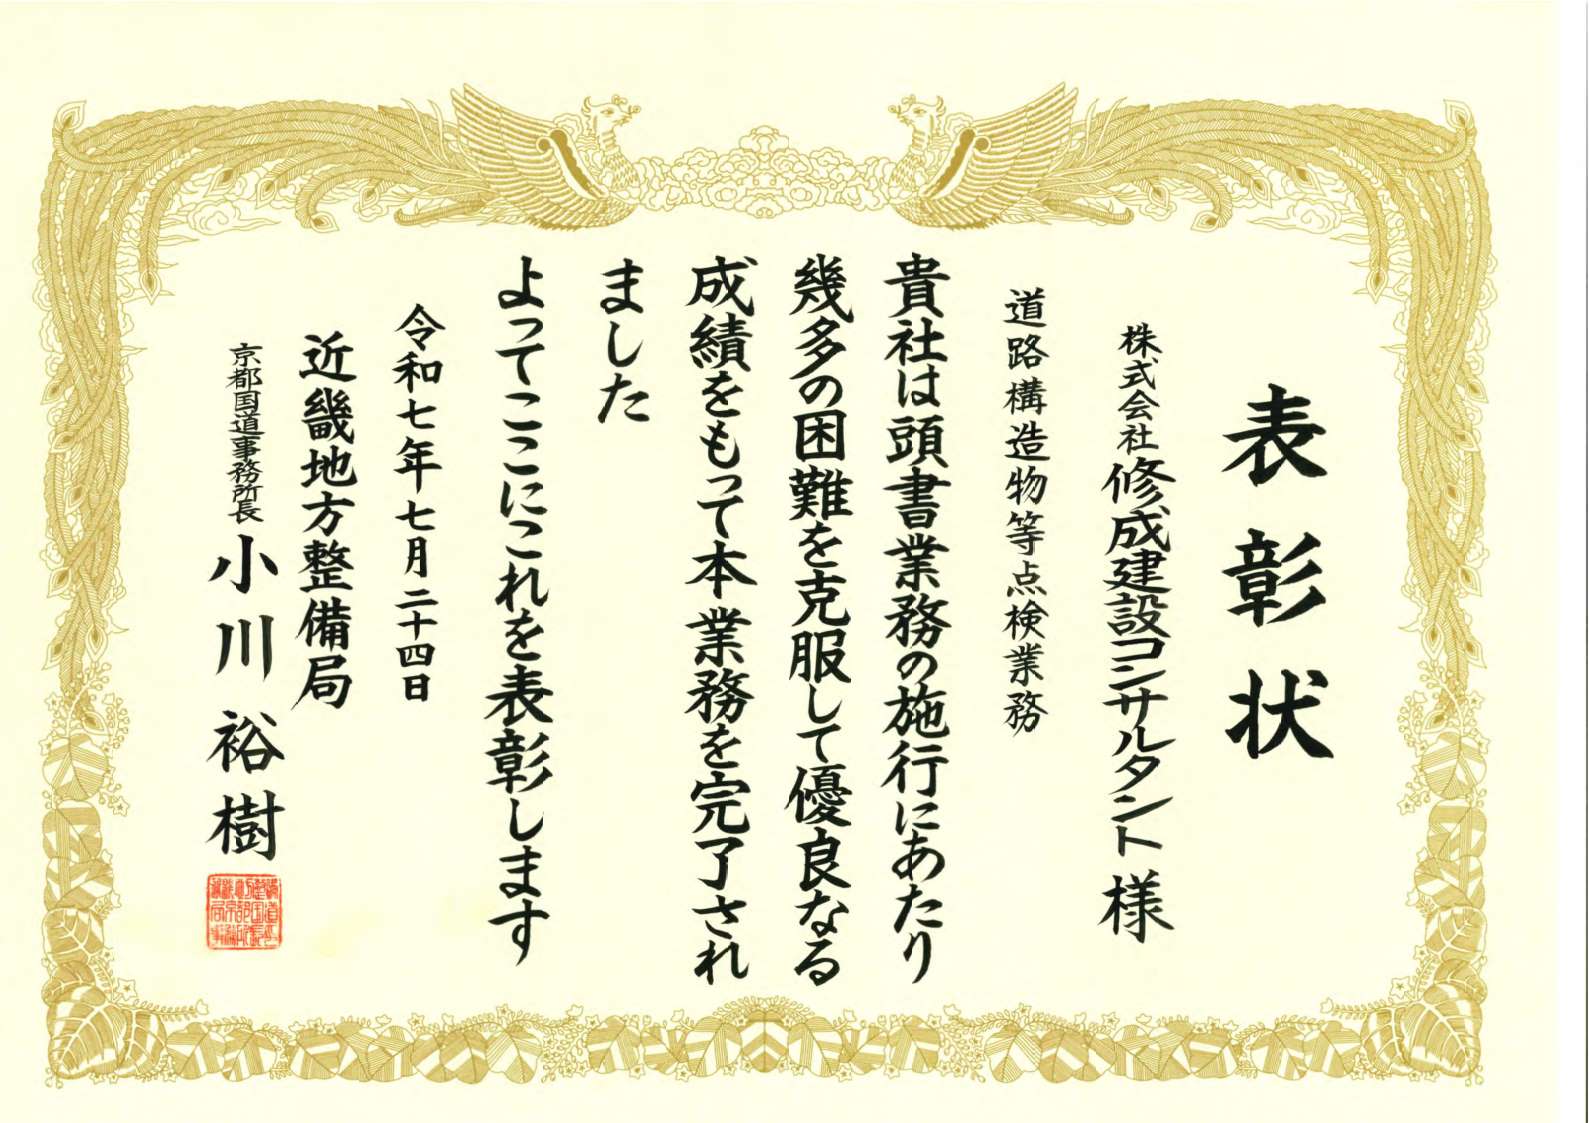 表彰状
株式会社修成建設コンサルタント様
道路構造物等点検業務
貴社は頭書業務の施行にあたり
幾多の困難を克服して優良なる
成績をもって本業務を完了され
ました
よってここにこれを表彰します
令和七年七月二十四日
近畿地方整備局
京都国道事務所長 小川裕樹